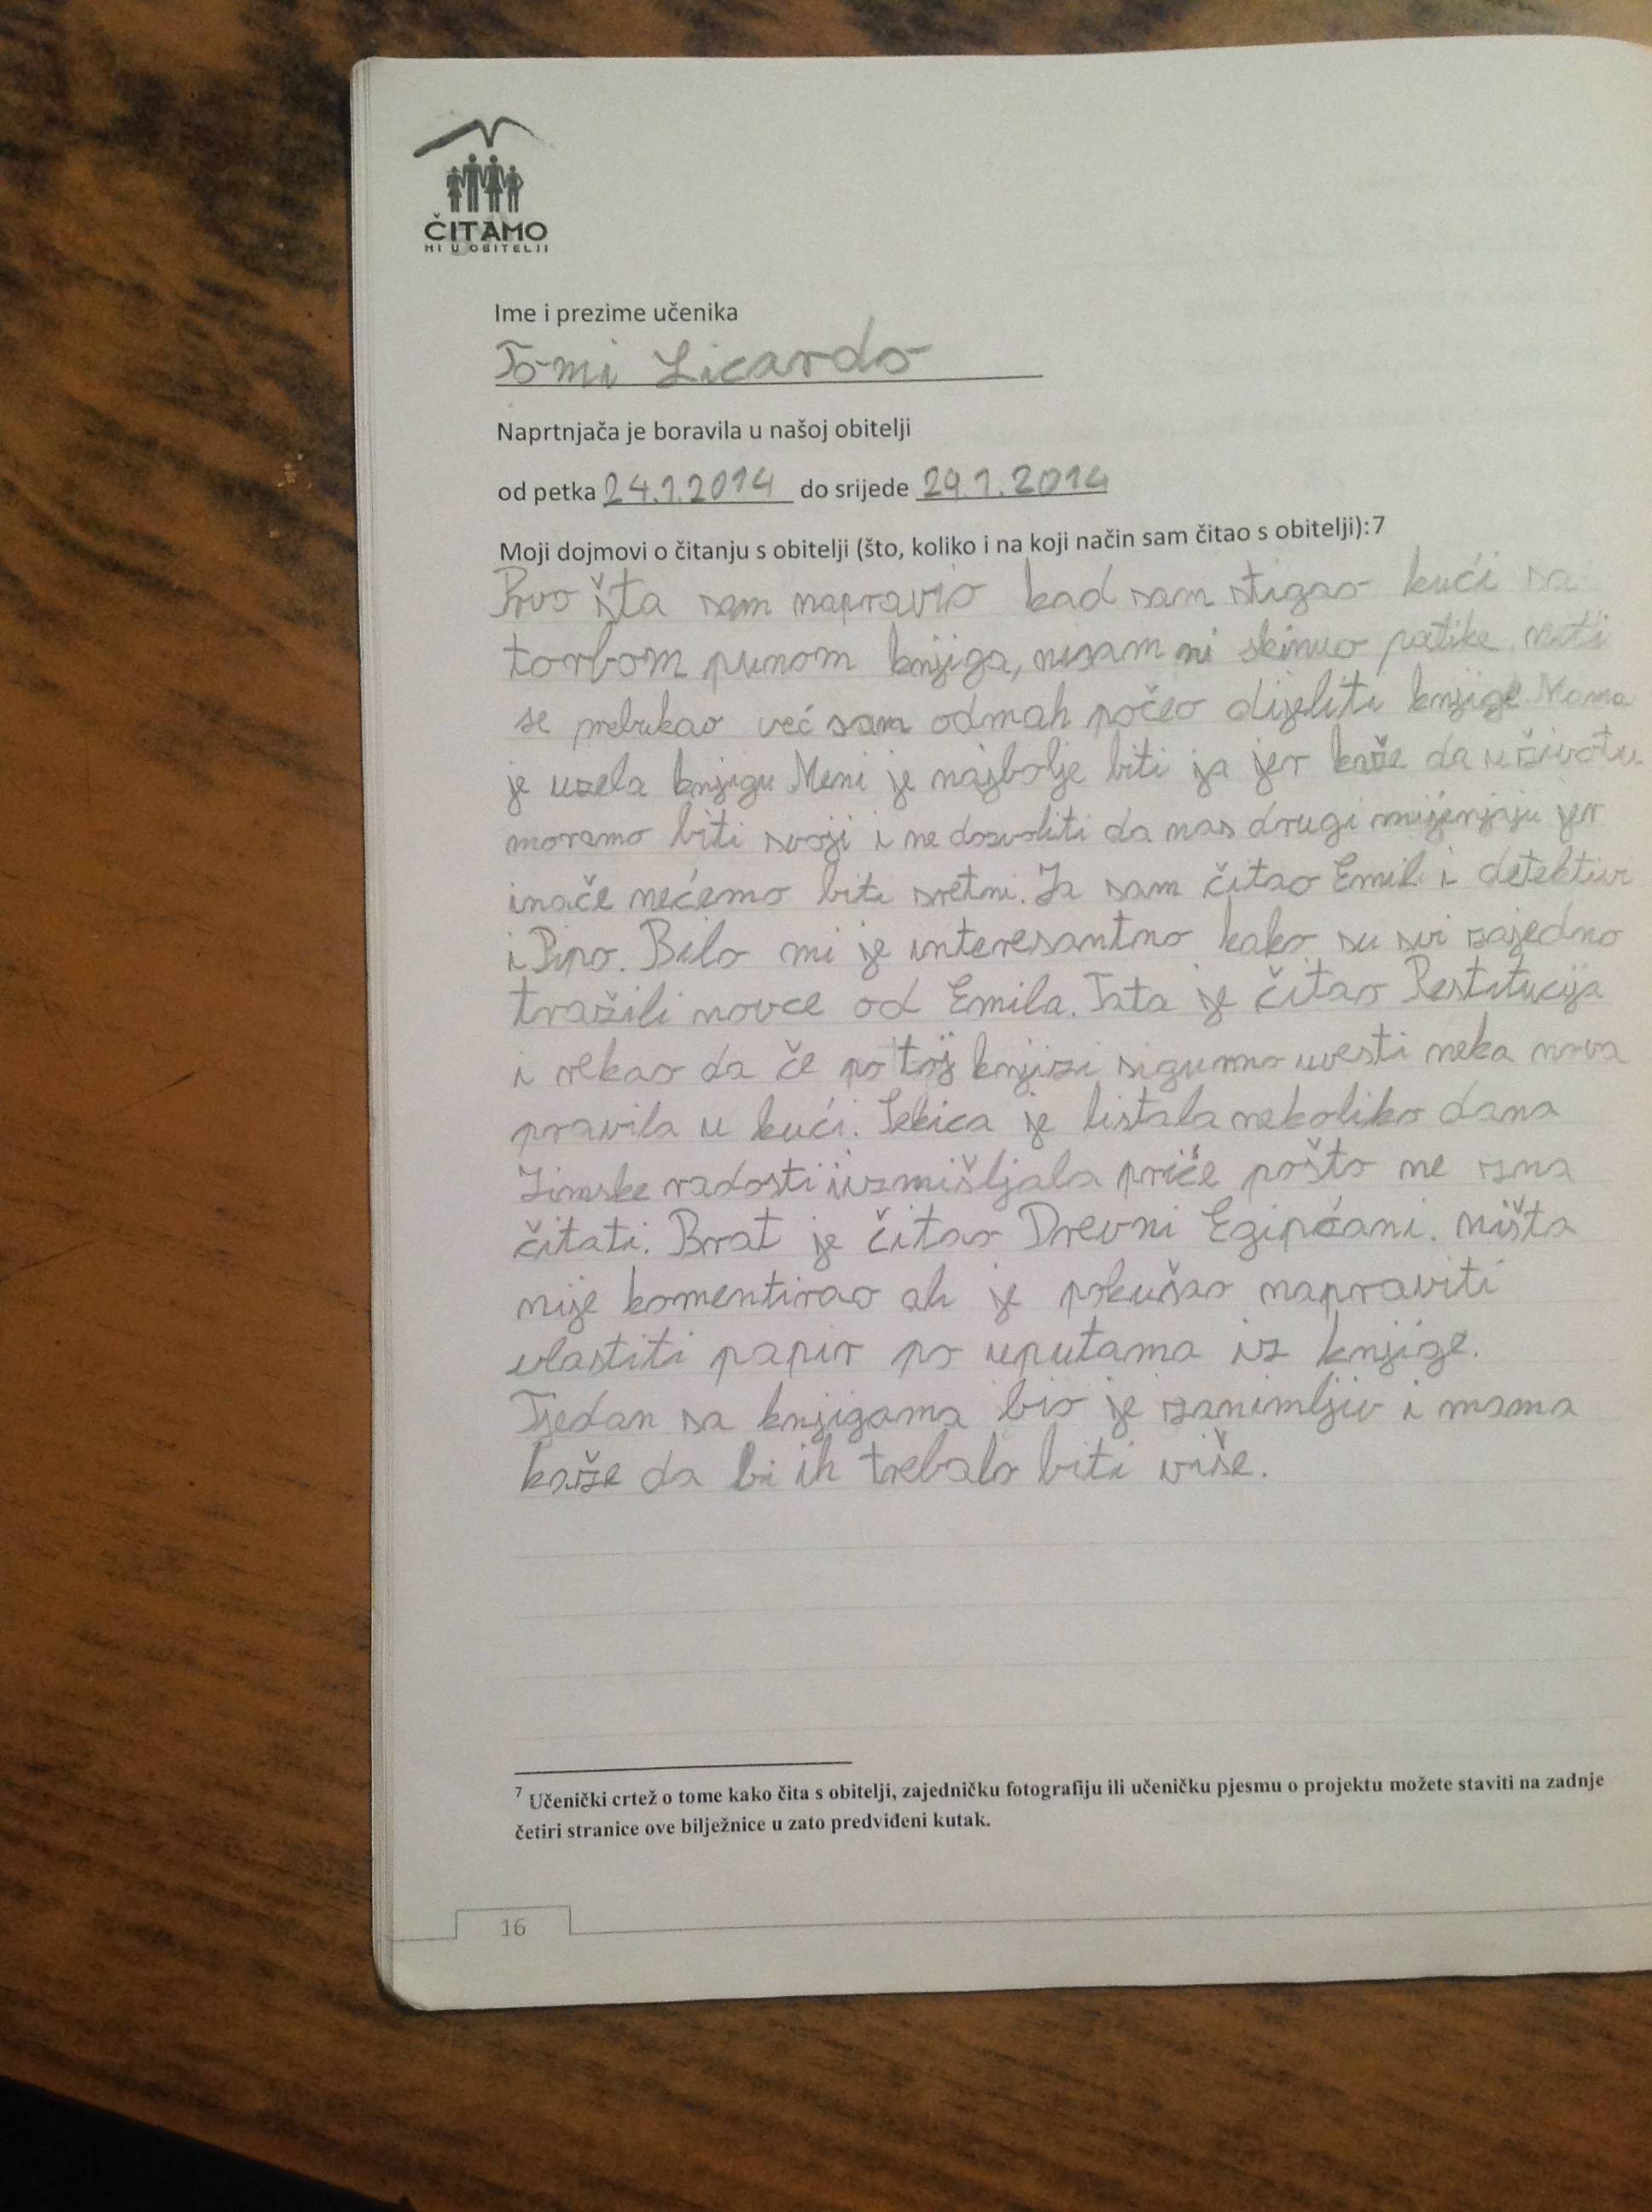 ČITAMO
MI U OBITELJI
Ime i prezime učenika
Tomi Licardo
Naprtnjača je boravila u našoj obitelji
od petka 24.1.2014 do srijede 29.1.2014
Moji dojmovi o čitanju s obitelji (što, koliko i na koji način sam čitao s obitelji):7
Prvo šta sam napravio kad sam stigao kući sa
torbom punom knjiga, nisam ni skinuo patike niti
se prebukao već sam odmah počeo dijeliti knjige. Mama
je uzela knjigu Meni je najbolje biti ja jer kaže da u životu
moramo biti svoji i ne dozvoliti da nas drugi mijenjaju jer
inače nećemo biti sretni. Ja sam čitao Emil i detektivi
i Pipo. Bilo mi je interesantno kako su svi zajedno
tražili novce od Emila. Tata je čitao Restitucija
i rekao da če po toj knjizi sigurno uvesti neka nova
pravila u kući. Sekica je listala nekoliko dana
Zimske radosti i izmišljala priče pošto ne zna
čitati. Brat je čitao Drevni Egipćani. ništa
nije komentirao ali je pokušao napraviti
vlastiti papir po uputama iz knjige.
Tjedan sa knjigama bio je zanimljiv i mama
kaže da bi ih trebalo biti više.
7 Učenički crtež o tome kako čita s obitelji, zajedničku fotografiju ili učeničku pjesmu o projektu možete staviti na zadnje
četiri stranice ove bilježnice u zato predviđeni kutak.
16